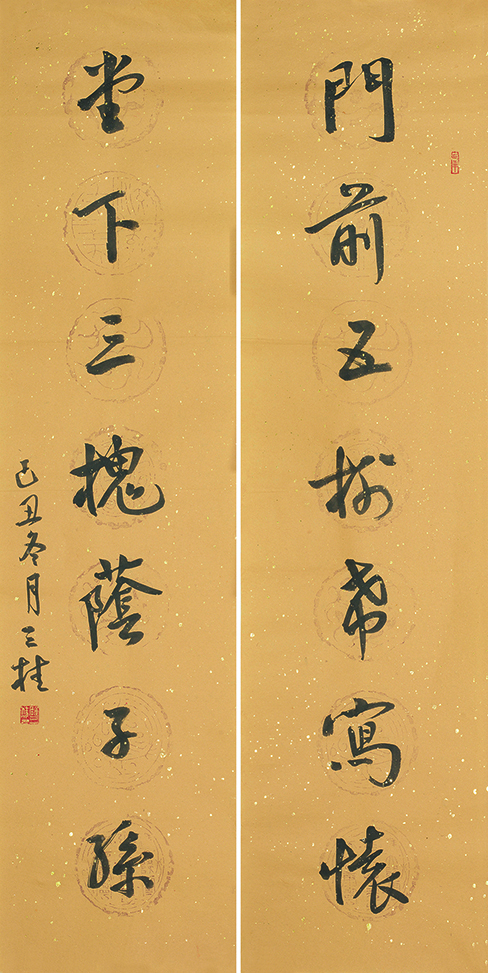 門前五柳希寫懷
堂下三槐蔭子孫
己丑冬月三桂